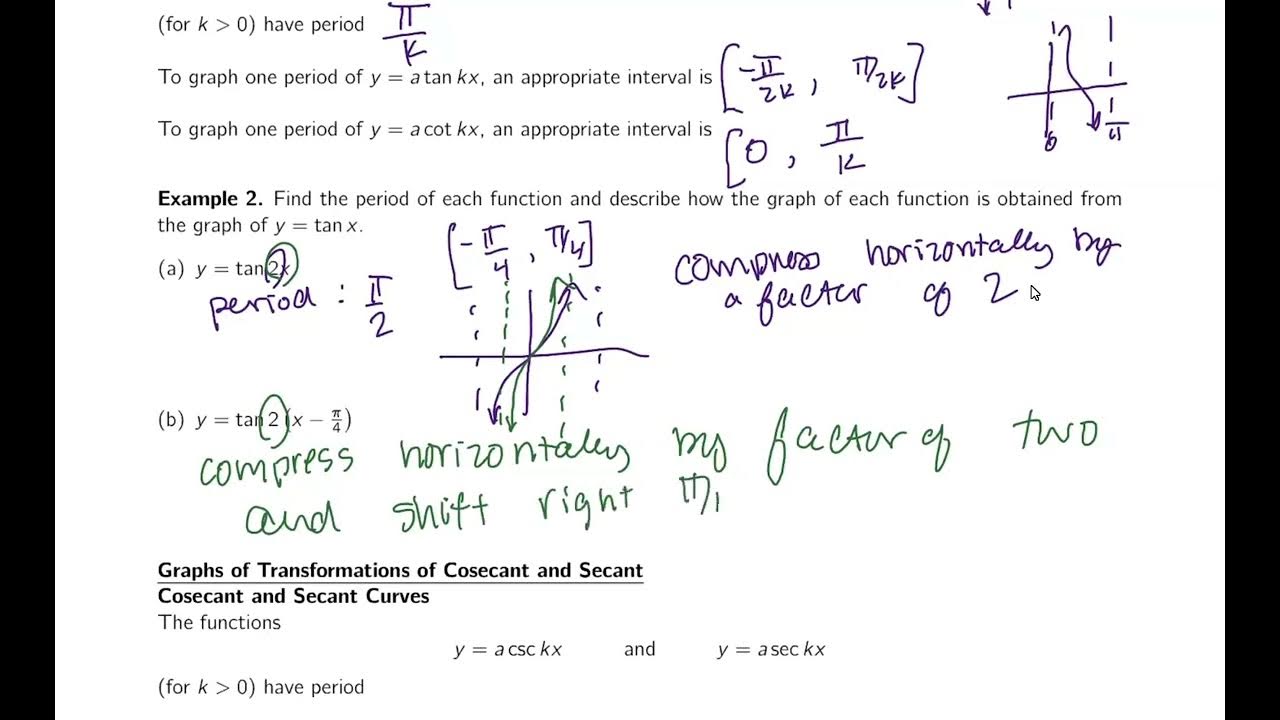 (for k > 0) have period π/k
To graph one period of y = a tan kx, an appropriate interval is [-π/2k, π/2k]
To graph one period of y = a cot kx, an appropriate interval is [0, π/k
0
Example 2. Find the period of each function and describe how the graph of each function is obtained from
the graph of y = tan x.
[-π/4, π/4]
compress horizontally by
(a) y = tan 2x
a factor of 2
period : π/2
(b) y = tan 2(x − π/4)
compress horizontally by factor of two
and shift right
Graphs of Transformations of Cosecant and Secant
Cosecant and Secant Curves
The functions
y = a csc kx and y = a sec kx
(for k > 0) have period